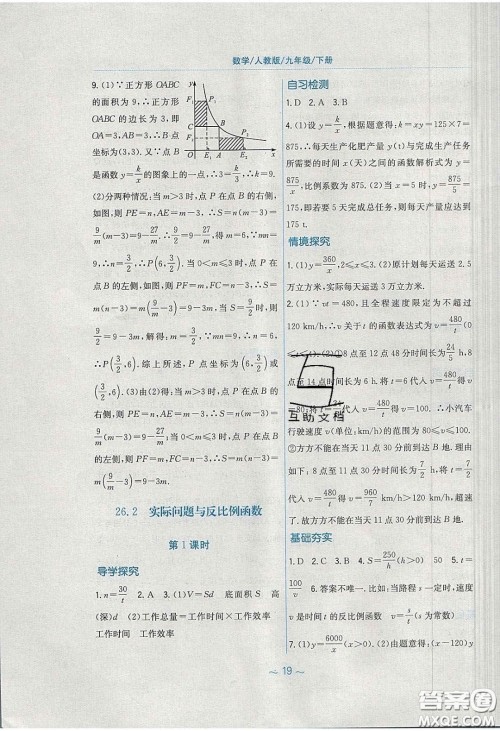 数学/人教版/九年级/下册
9.(1)∵正方形OABC
的面积为9,∴正方形OABC
的边长为3,即
OA=3,AB=3.∴B点
坐标为(3,3).又∵点B
是函数y=k/x的图象上的一点,∴k/3=3,∴k=9.
(2)分两种情况:当m>3时,点P在点B的右侧,
如图,则PE=n,AE=m-3.∴S=n(m-3)=
9/m(m-3)=9-27/m=9/2.∴m=6.∴n=9/m=9/6
=3/2.∴P(6,3/2).当0<m≤3时,点P在
点B的左侧,如图,则PF=m,FC=n-3.∴S=
m(n-3)=m(9/m-3)=9-3m=9/2.∴m=3/2.∴n
=6.∴P(3/2,6).综上所述,P点坐标为(6,3/2)或
(3/2,6).(3)由(2)得:当m>3时,点P在点B的
右侧,则PE=n,AE=m-3.∴S=n(m-3)=
9/m(m-3)=9-27/m;当0<m≤3时,点P在点B
的左侧,则PF=m,FC=n-3.∴S=m(n-3)=
m(9/m-3)=9-3m.
26.2 实际问题与反比例函数
第1课时
导学探究
1.n=30/t 2.A 3.(1)V=Sd 底面积S 高
(深)d (2)工作总量=工作时间×工作效率
工作时间 工作效率
y
F P
C B
P
O E₁ A E x
自习检测
1.D 2.A 3.B
4.(1)设y=k/x,根据题意得:k=xy=125×7=
875,∴每天生产化肥产量y(t)与完成生产任务
所需要的时间x(天)之间的函数解析式为y=
875/x,比例系数为875.(2)当x=5时,y=875/5=
175,即若要5天完成总任务,则每天产量应达到
175 t.
情境探究
1.(1)y=360/x,2≤x≤3.(2)原计划每天运送2.5
万立方米,实际每天运送3万立方米.
2.(1)∵vt=480,且全程速度限定为不超过
120 km/h,∴v关于t的函数表达式为v=480/t
(t≥4).(2)①8点至12点48分时间长为24/5 h,8
点至14点时间长为6 h.将t=6代入v=480/t得v
=80;将t=24/5代入v=480/t得v=100.∴小汽车
行驶速度v(单位:km/h)的范围为80≤v≤100.
②方方不能在当天11点30分前到达B地.理由
如下:8点至11点30分时间长为7/2 h,将t=7/2代
入v=480/t得v=960/7>120.∴方方不能在当天
11点30分前到达B地.
基础夯实
1.D 2.C 3.B 4.S=250/h(h>0) 5.t=
100/v 6.答案不唯一.比如,当路程s一定时,速度
v是时间t的反比例函数 v=s/t(s为常数)
7.(1)y=6000/x(x>0).(2)由题意得:(x-120)y
互助文档
~19~
答案圈
MXQE.COM